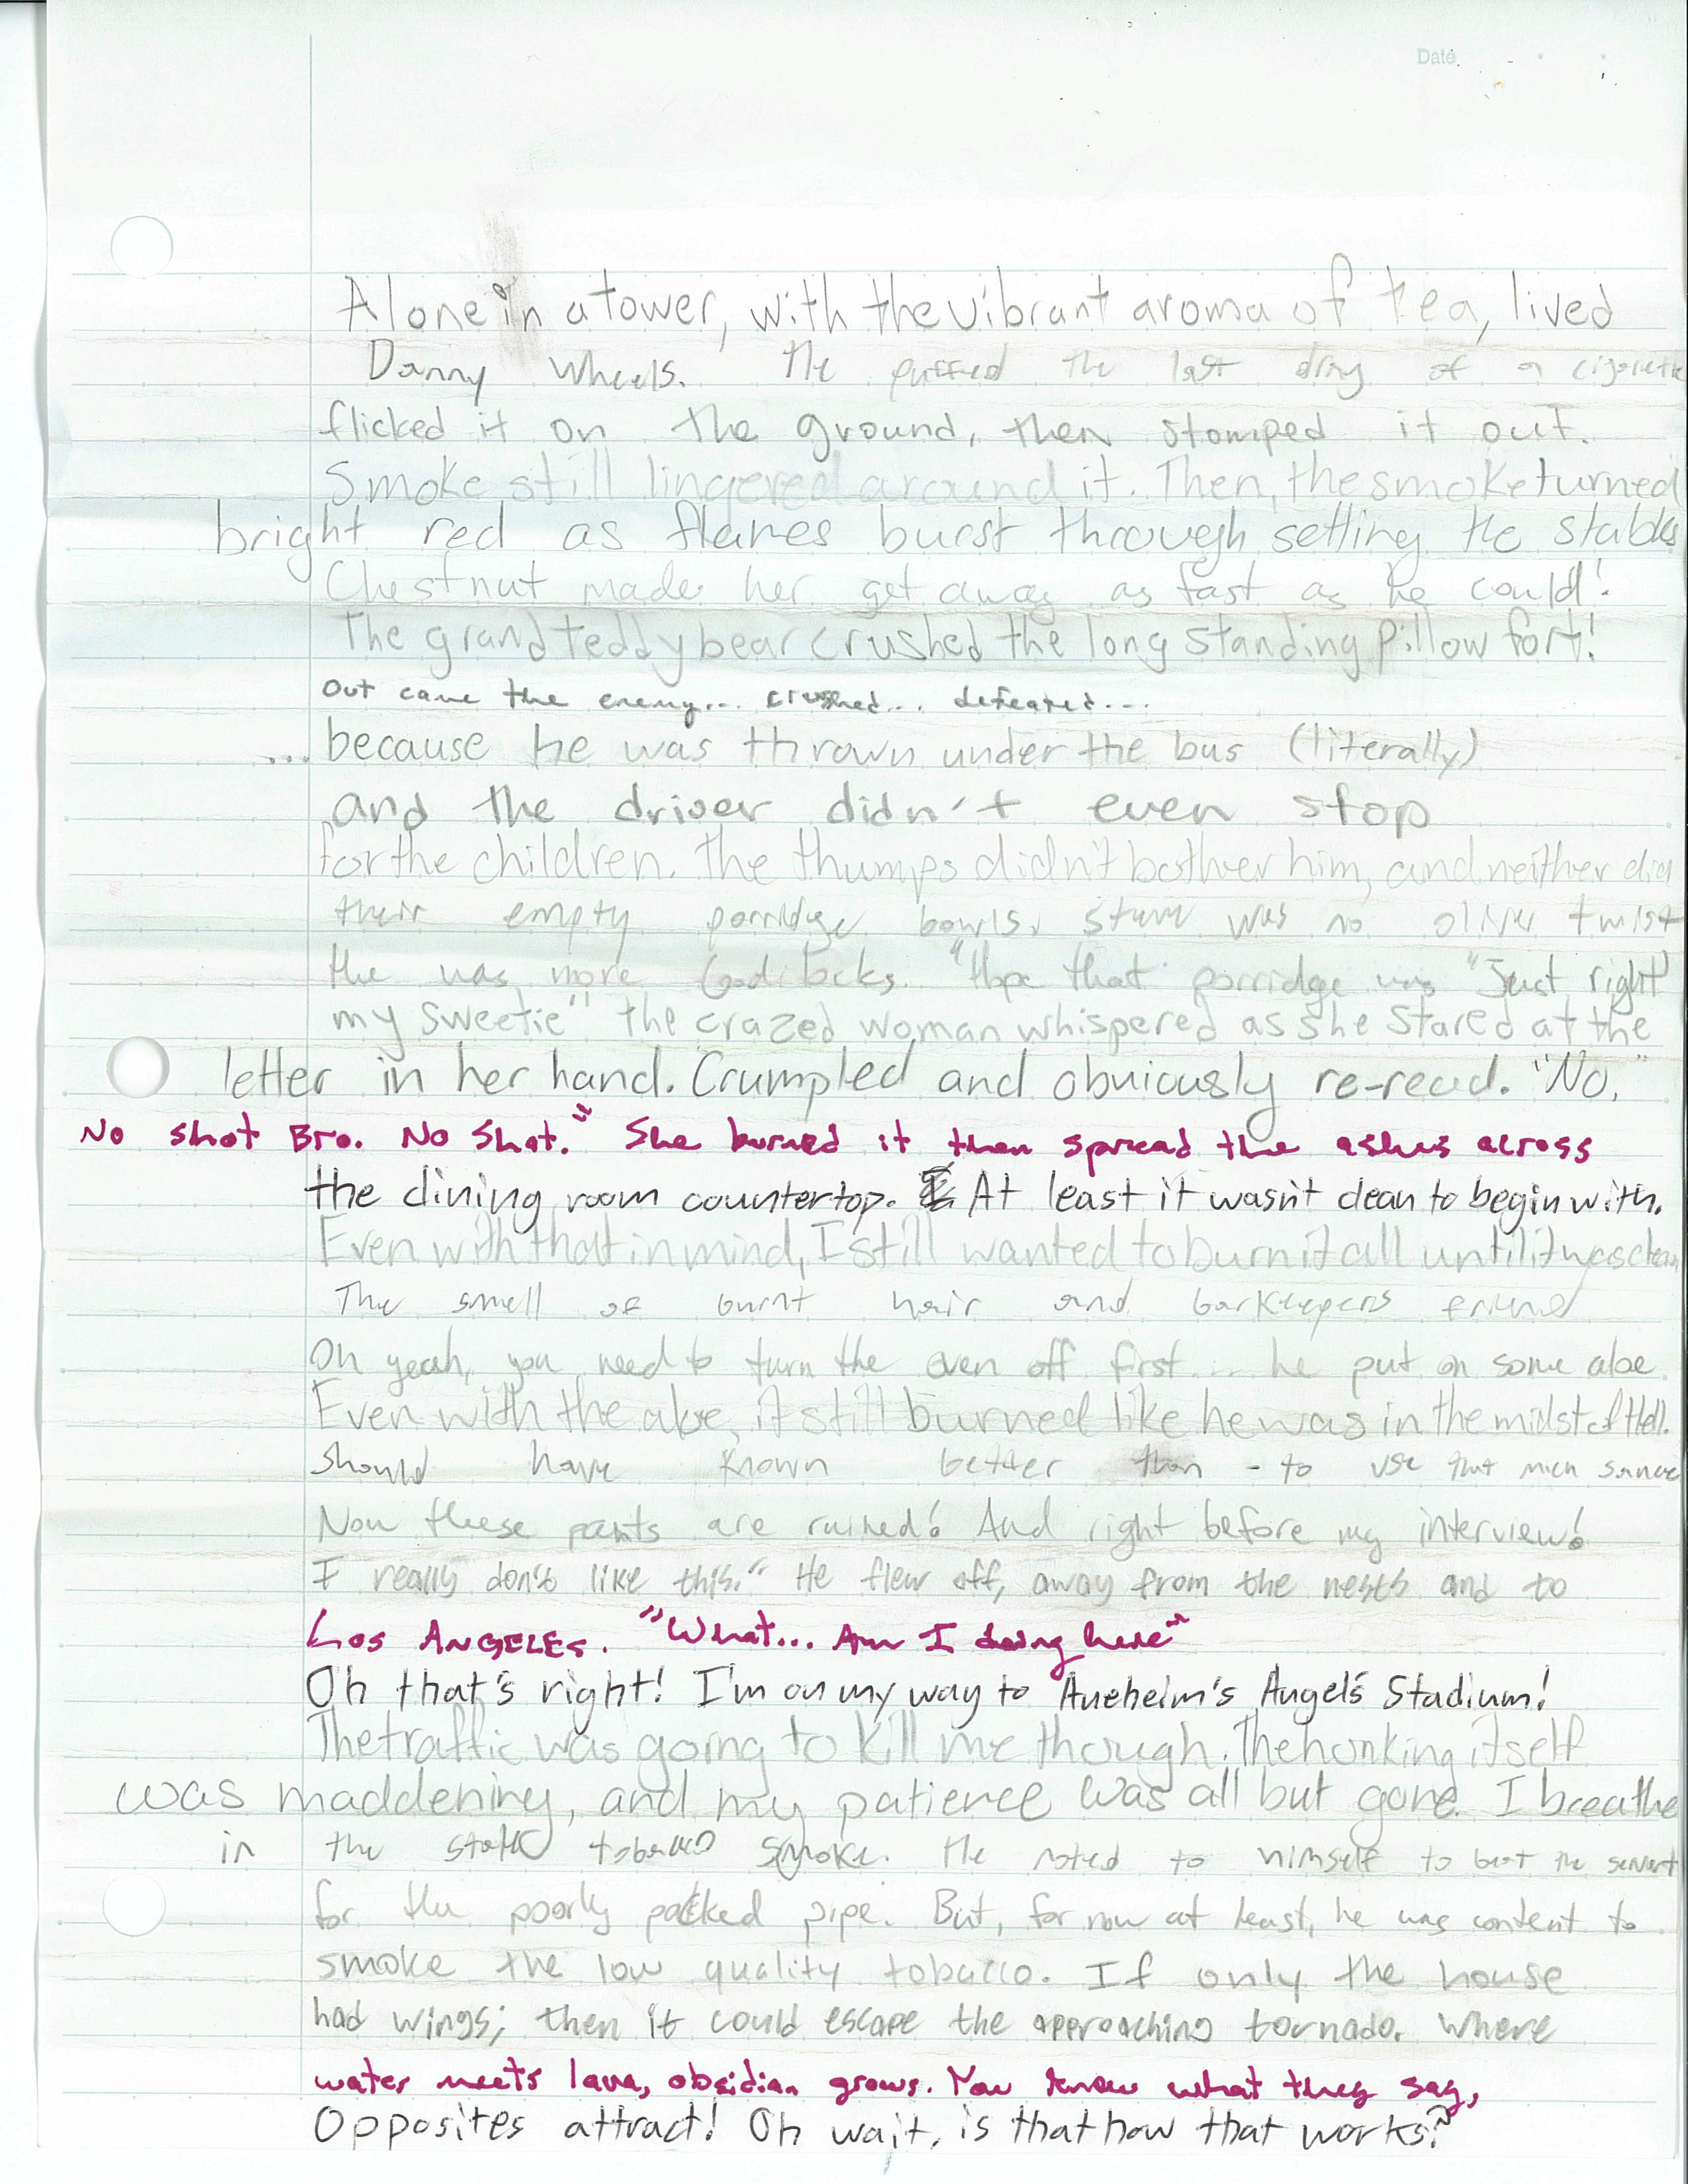 Date
Alone in a tower, with the vibrant aroma of tea, lived
Danny Wheels. He puffed the last drag of a cigarette
flicked it on the ground, then stomped it out.
Smoke still lingered around it. Then, the smoke turned
bright red as flames burst through setting the stables
Chestnut made her get away as fast as he could!
The grand teddy bear crushed the long standing pillow fort!
Out came the enemy... crushed... defeated...
... because he was thrown under the bus (literally)
and the driver didn't even stop
for the children. The thumps didn't bother him, and neither did
their empty porridge bowls. Steve was no oliver twist
He was more Goodilocks. "Hope that porridge was "Just right
my sweetie" the crazed woman whispered as she stared at the
letter in her hand. Crumpled and obviously re-read. "No,"
No shot Bro. No Shot." She burned it then spread the ashes across
the dining room countertop. At least it wasn't clean to begin with.
Even with that in mind, I still wanted to burn it all until it was clean
The smell of burnt hair and barkeepers friend
Oh yeah, you need to turn the oven off first.... he put on some aloe
Even with the aloe, it still burned like he was in the midst of Hell.
Should have known better than - to use that much
Now these pants are ruined! And right before my interview!
I really don't like this." He flew off, away from the nests and to
Los ANGELES. "What... Am I doing here"
Oh that's right! I'm on my way to Aneheim's Angel's Stadium!
The traffic was going to kill me though. The honking itself
was maddening, and my patience was all but gone. I breathe
in the stale tobacco smoke. He noted to himself to beat the servant
for the poorly packed pipe. But, for now at least, he was content to
smoke the low quality tobacco. If only the house
had wings; then it could escape the approaching tornado. Where
water meets lava, obsidian grows. You know what they say,
Opposites attract! Oh wait, is that how that works?